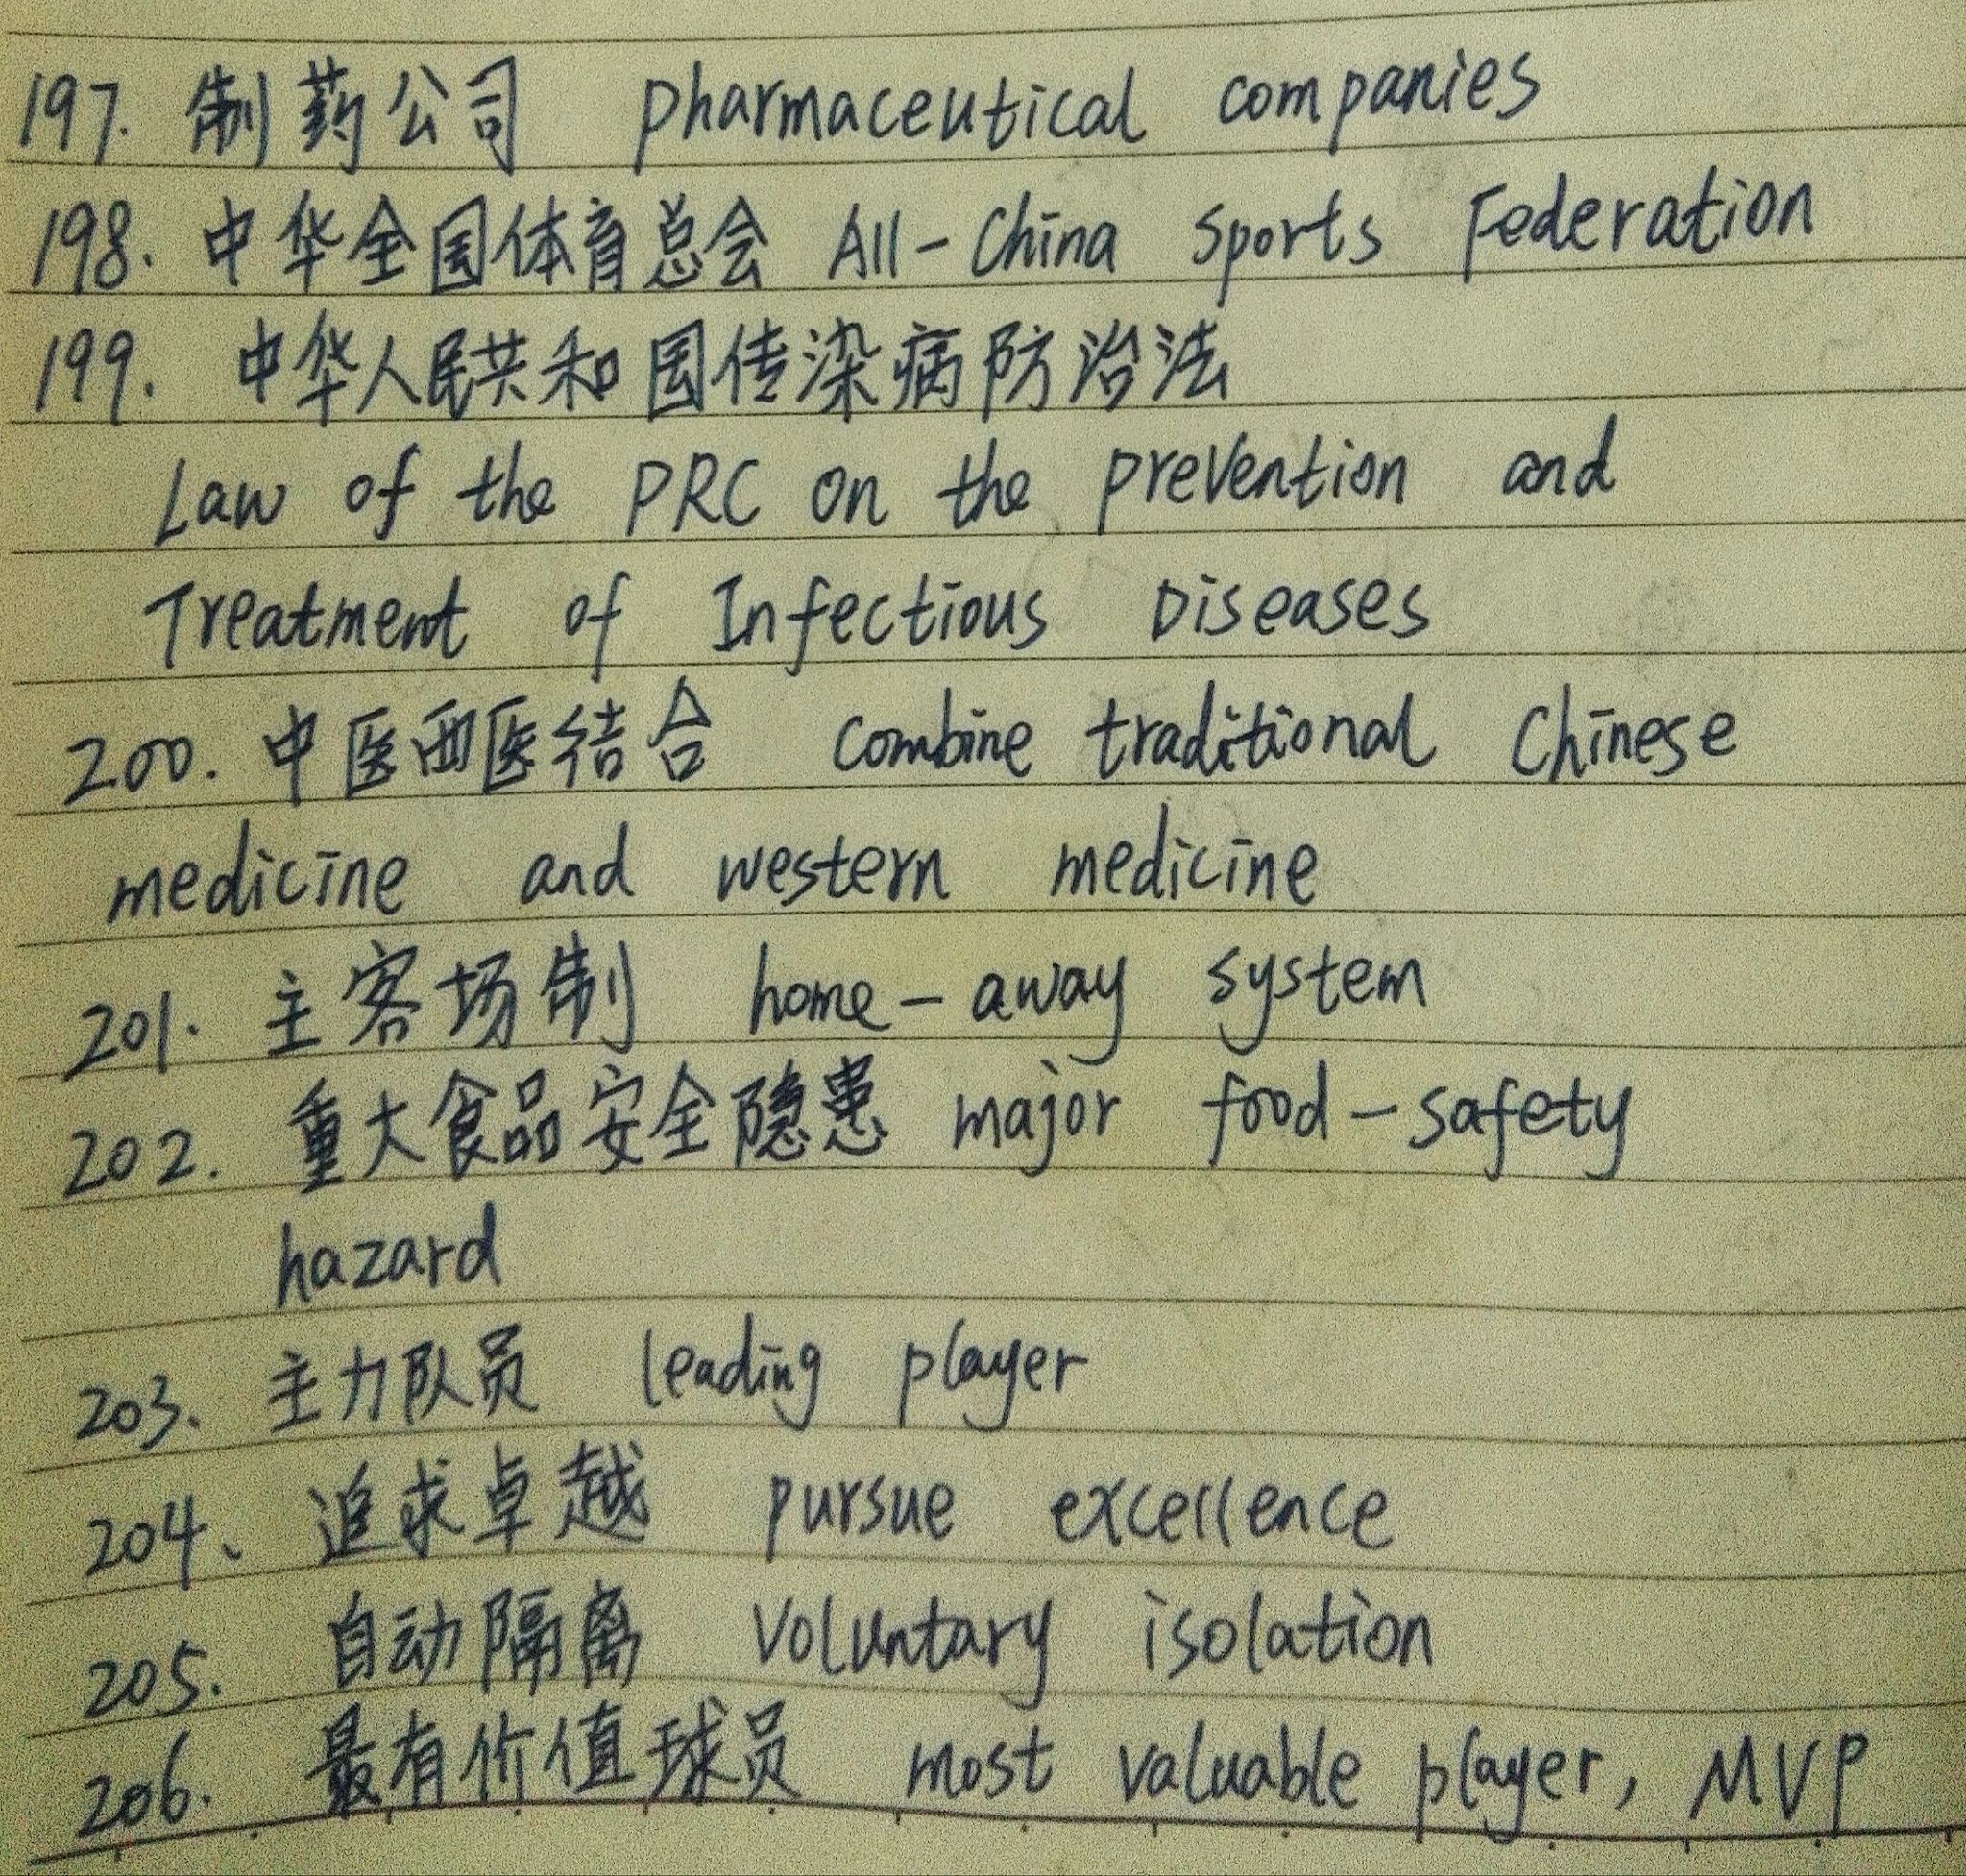 197. 制药公司 pharmaceutical companies
198. 中华全国体育总会 All-China Sports Federation
199. 中华人民共和国传染病防治法
Law of the PRC on the prevention and
Treatment of Infectious Diseases
200. 中医西医结合 combine traditional Chinese
medicine and western medicine
201. 主客场制 home-away system
202. 重大食品安全隐患 major food-safety
hazard
203. 主力队员 leading player
204、追求卓越 pursue excellence
205. 自动隔离 voluntary isolation
206. 最有价值球员 most valuable player, MVP